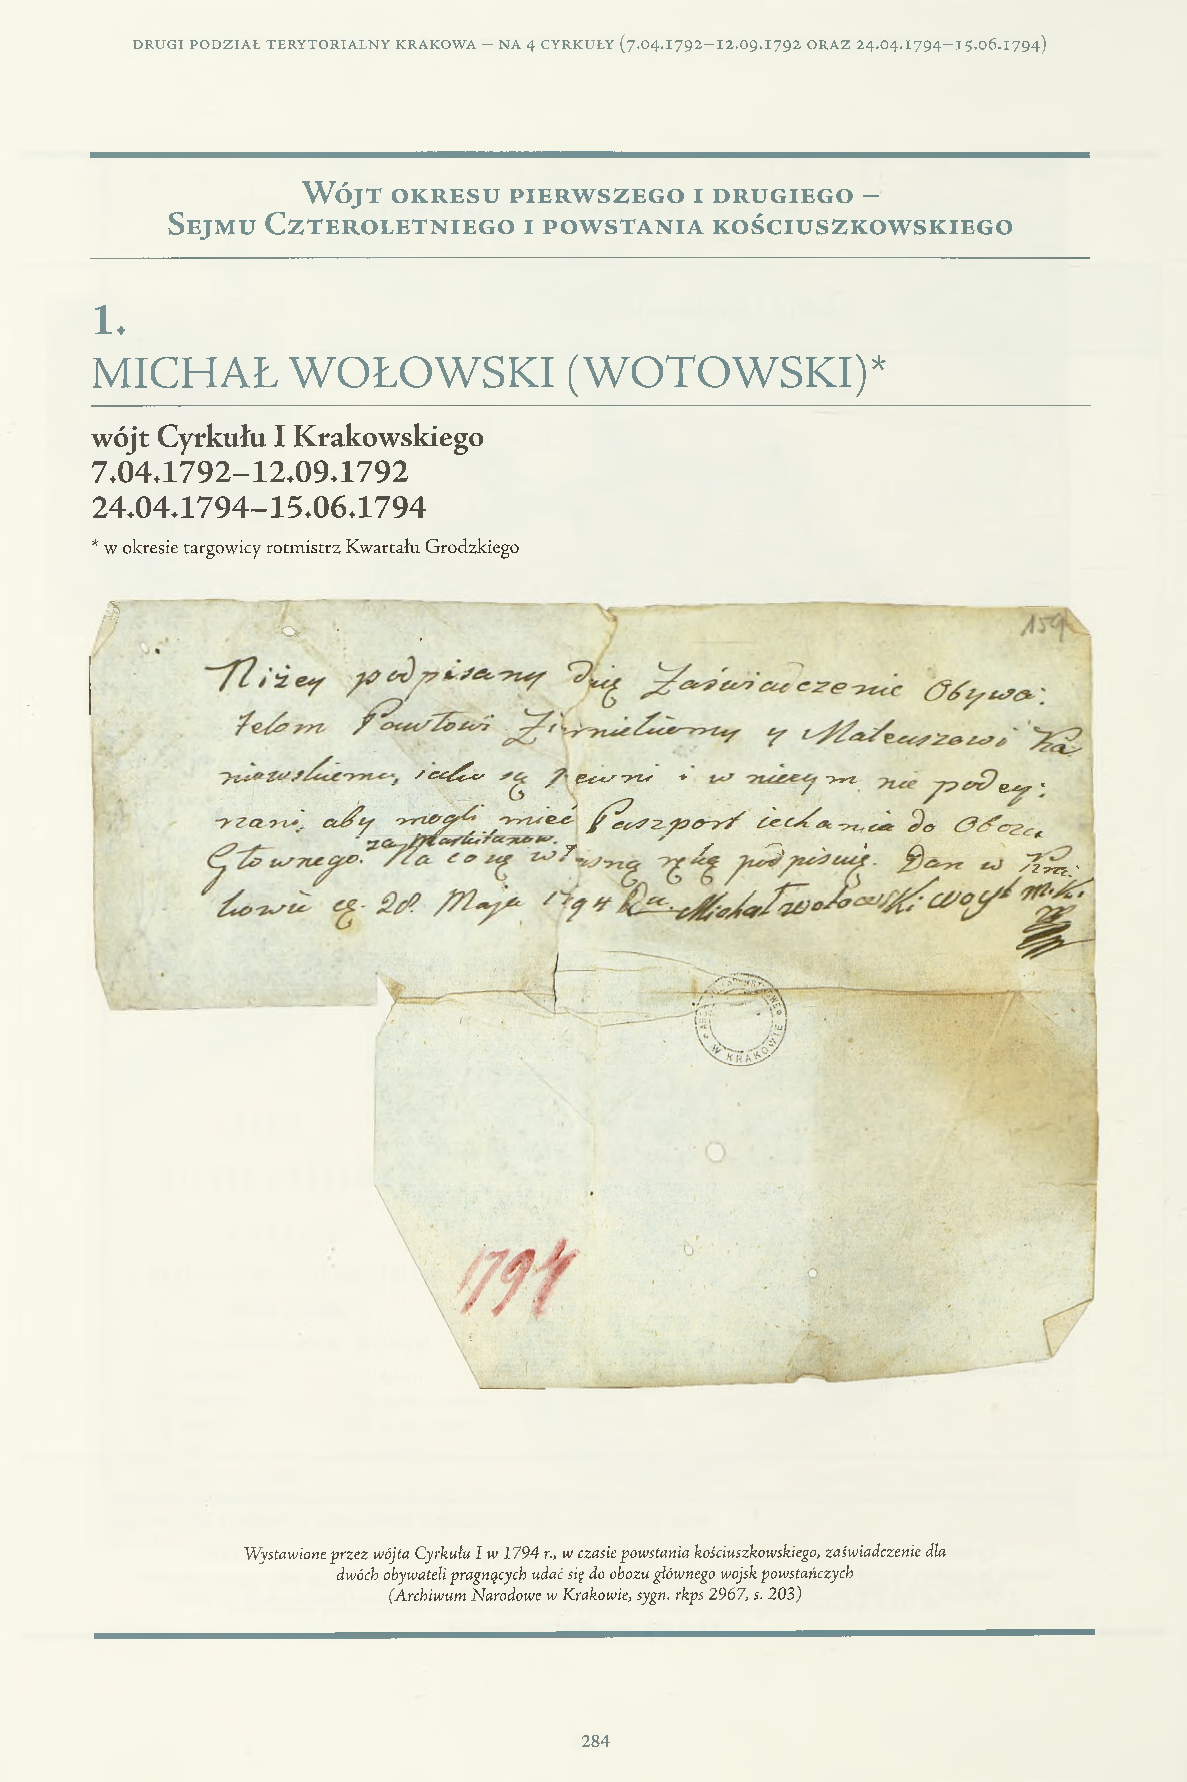 DRUGI PODZIAŁ TERYTORIALNY KRAKOWA – NA 4 CYRKUŁY (7.04.1792–12.09.1792 ORAZ 24.04.1794–15.06.1794)
WÓJT OKRESU PIERWSZEGO I DRUGIEGO –
SEJMU CZTEROLETNIEGO I POWSTANIA KOŚCIUSZKOWSKIEGO
1.
MICHAŁ WOŁOWSKI (WOTOWSKI)*
wójt Cyrkułu I Krakowskiego
7.04.1792–12.09.1792
24.04.1794–15.06.1794
* w okresie targowicy rotmistrz Kwartału Grodzkiego
159
Niżey podpisany daię Zaświadczenie Obywa:
telom Pawłowi y Mateuszowi Ka
niewskiemu, iako są pewni i w niczym nie podey:
rzani, aby mogli mieć Paszport iechania do Obozu
za Markitanow.
Głownego. Na co się własną ręką podpisuię. Dan w Kra:
kowie 28. Maja 1794 Michał wołowski woyt
W KRAKOWIE
1794
Wystawione przez wójta Cyrkułu I w 1794 r., w czasie powstania kościuszkowskiego, zaświadczenie dla
dwóch obywateli pragnących udać się do obozu głównego wojsk powstańczych
(Archiwum Narodowe w Krakowie, sygn. rkps 2967, s. 203)
284